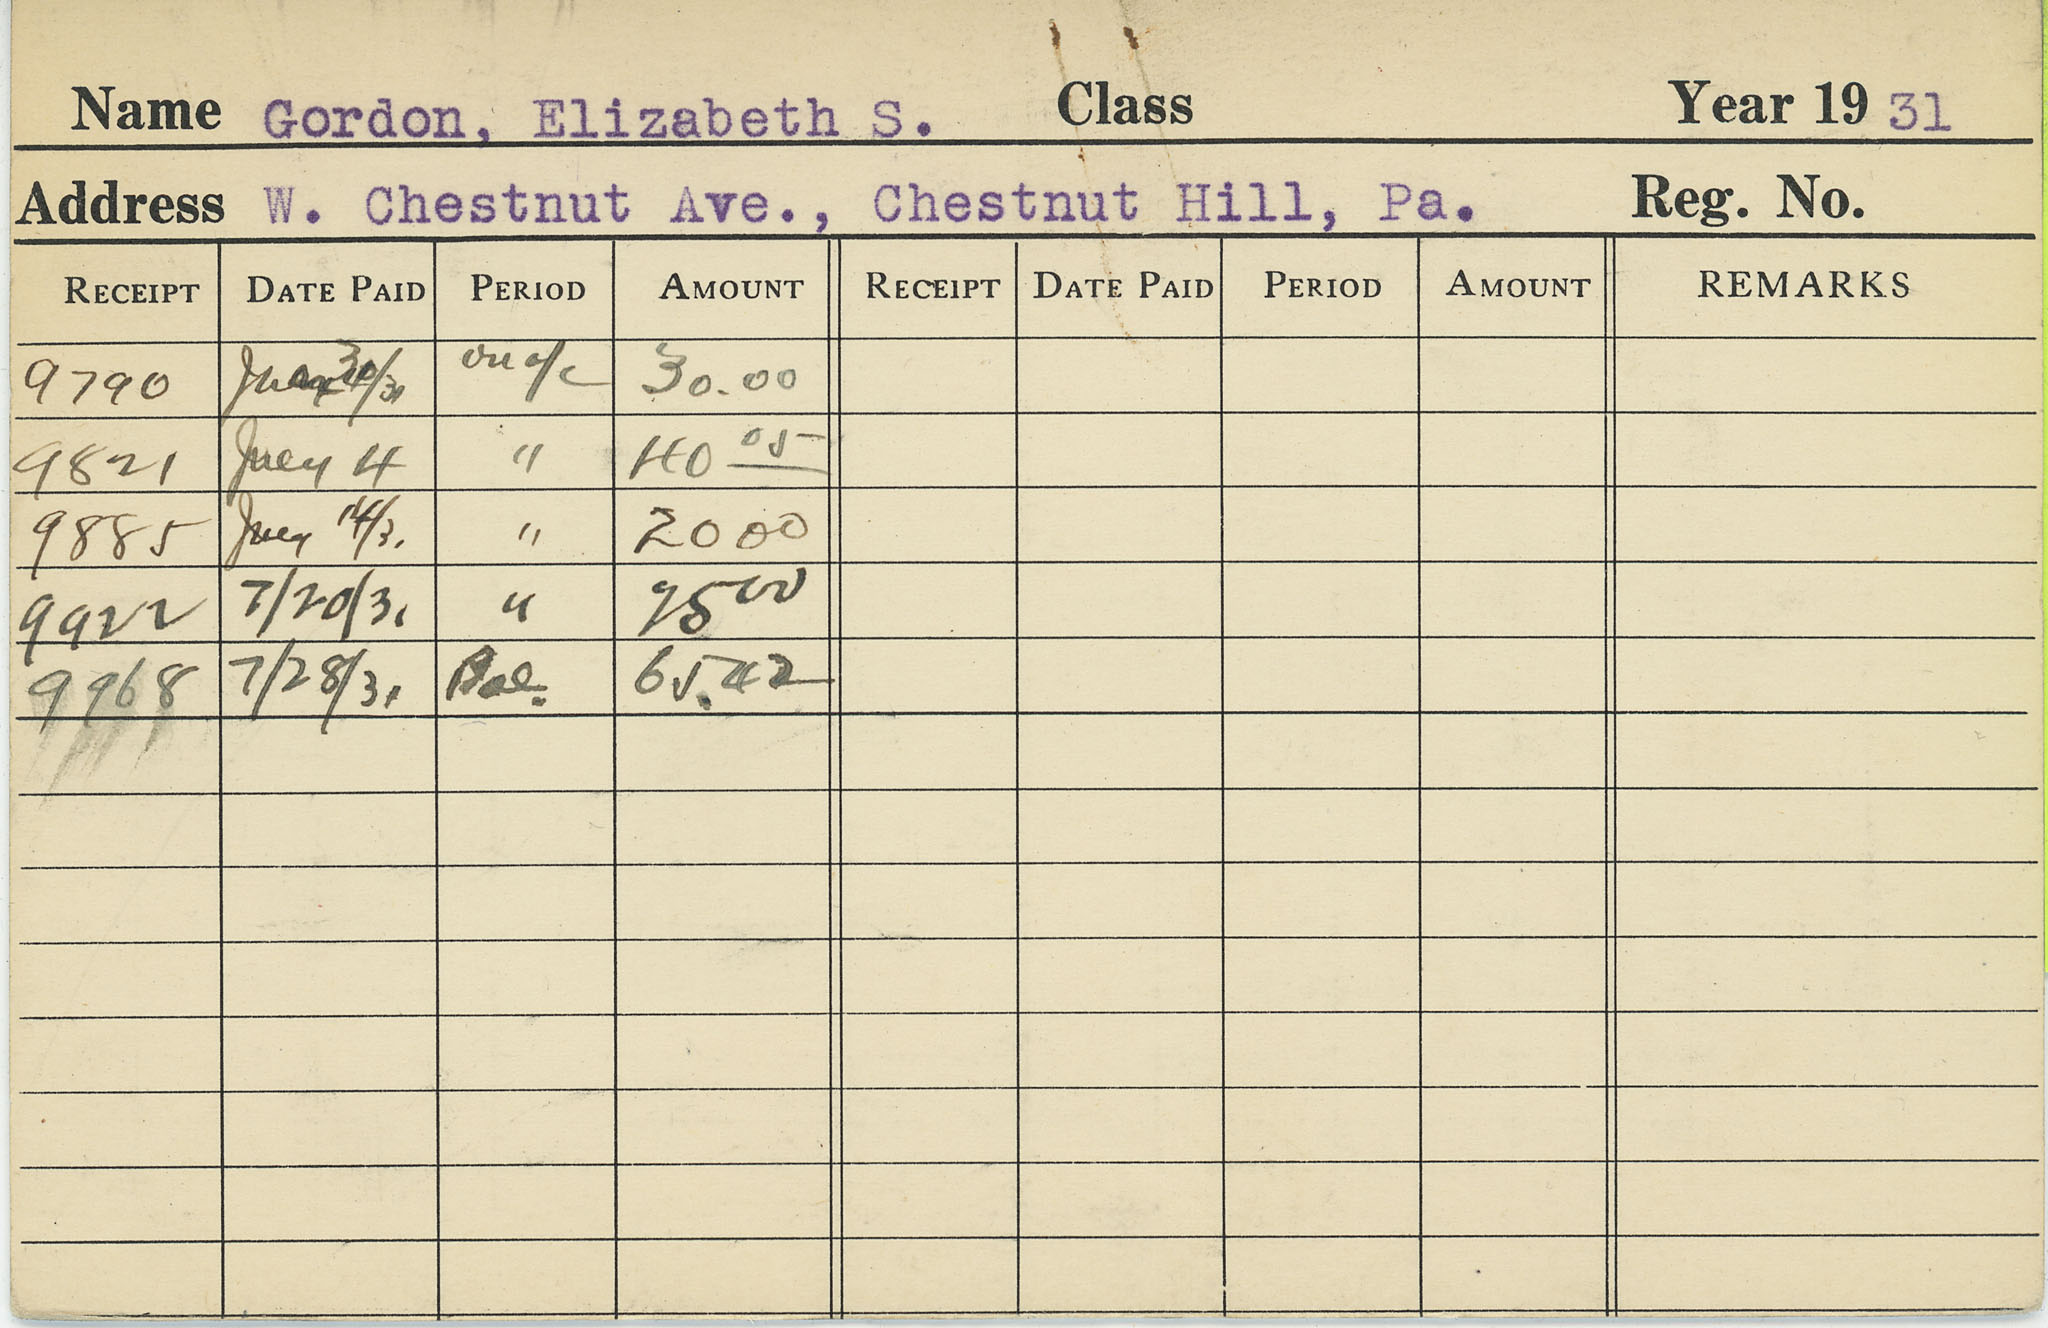 Name Gordon, Elizabeth S. Class Year 19 31
Address W. Chestnut Ave., Chestnut Hill, Pa. Reg. No.
RECEIPT DATE PAID PERIOD AMOUNT RECEIPT DATE PAID PERIOD AMOUNT REMARKS
9790 June 30/31 on a/c 30.00
9821 July 4 " 40 05
9885 July 14/31 " 20 00
9922 7/20/31 " 00
9968 7/28/31 Bal. 65.42